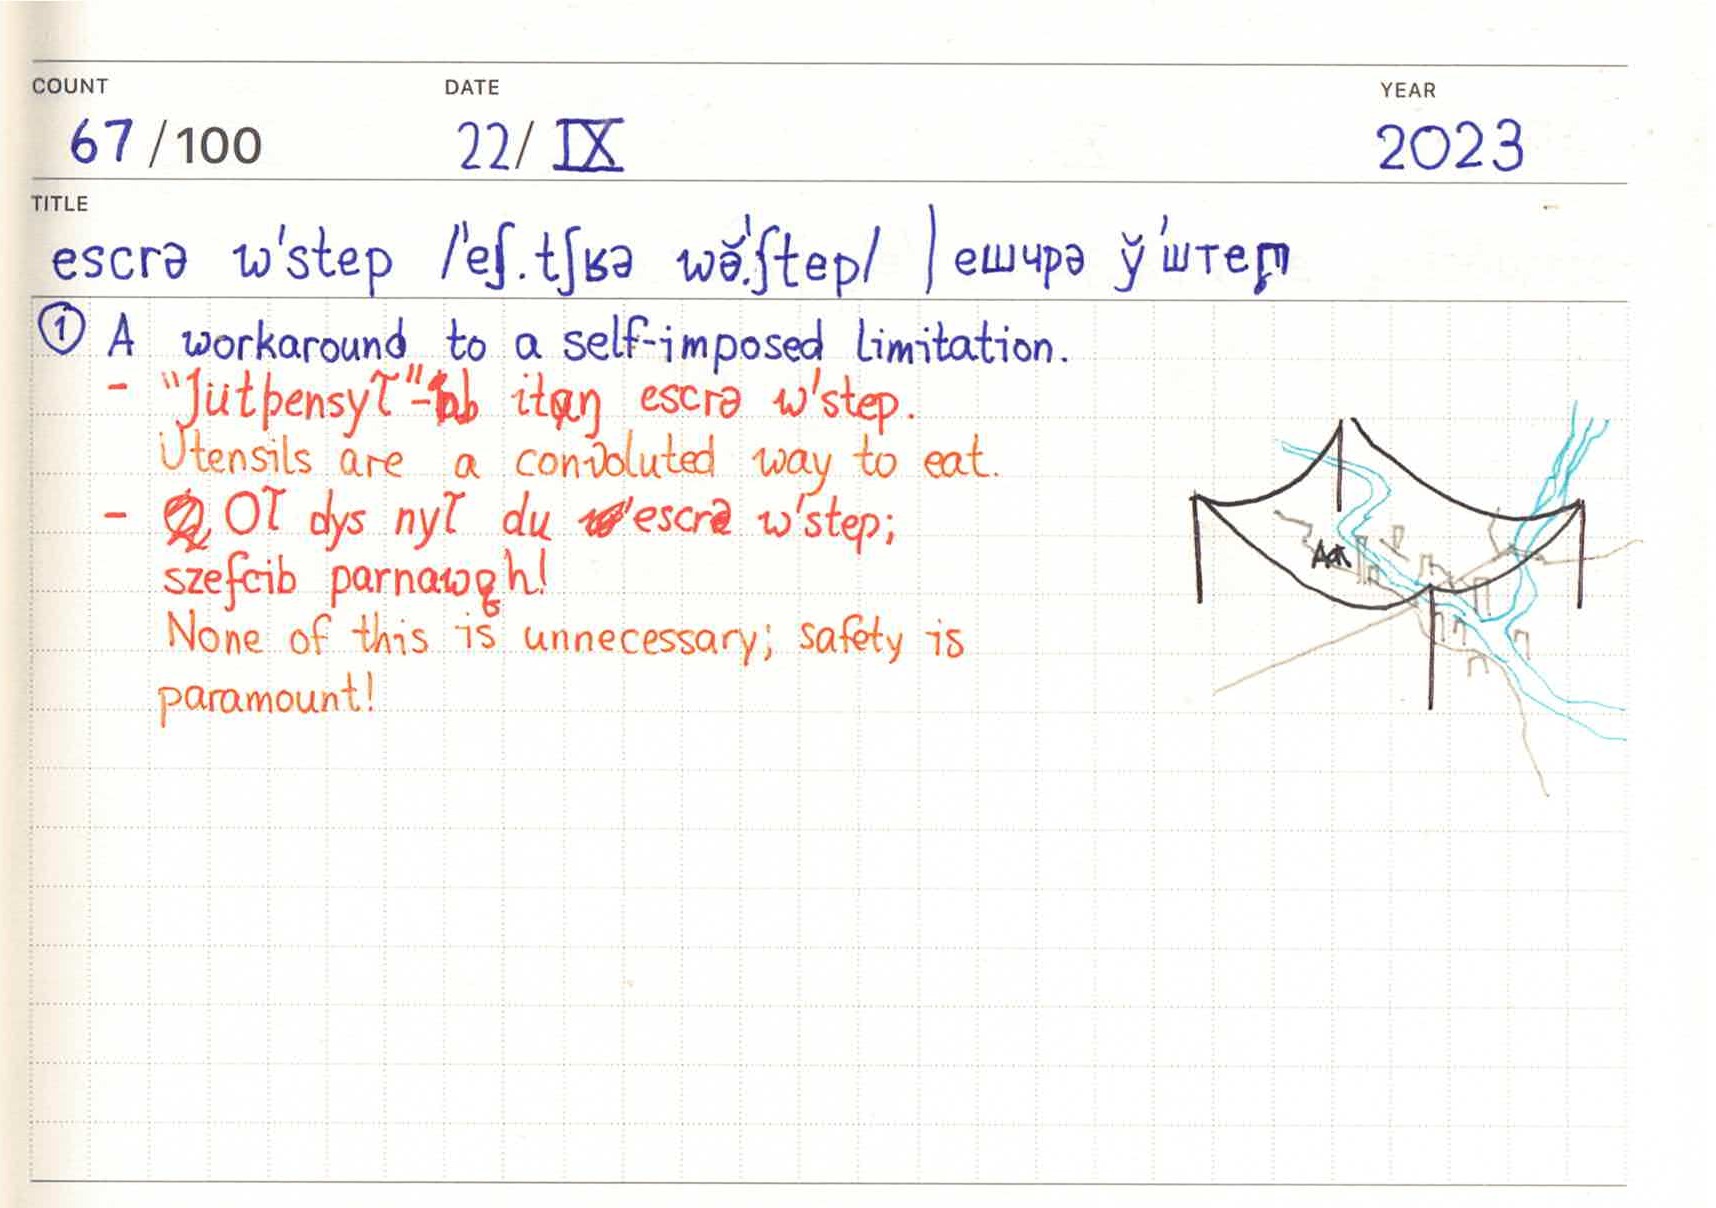 COUNT DATE YEAR
67/100 22/IX 2023
TITLE
escrə w'step /'eʃ.tʃʁə wə̆.'ʃtep/ | ешчрə ў'штеԥ
① A workaround to a self-imposed limitation.
- escrə w'step.
Utensils are a convoluted way to eat.
- dys du escrə w'step;
szefcib
None of this is unnecessary; safety is
paramount!